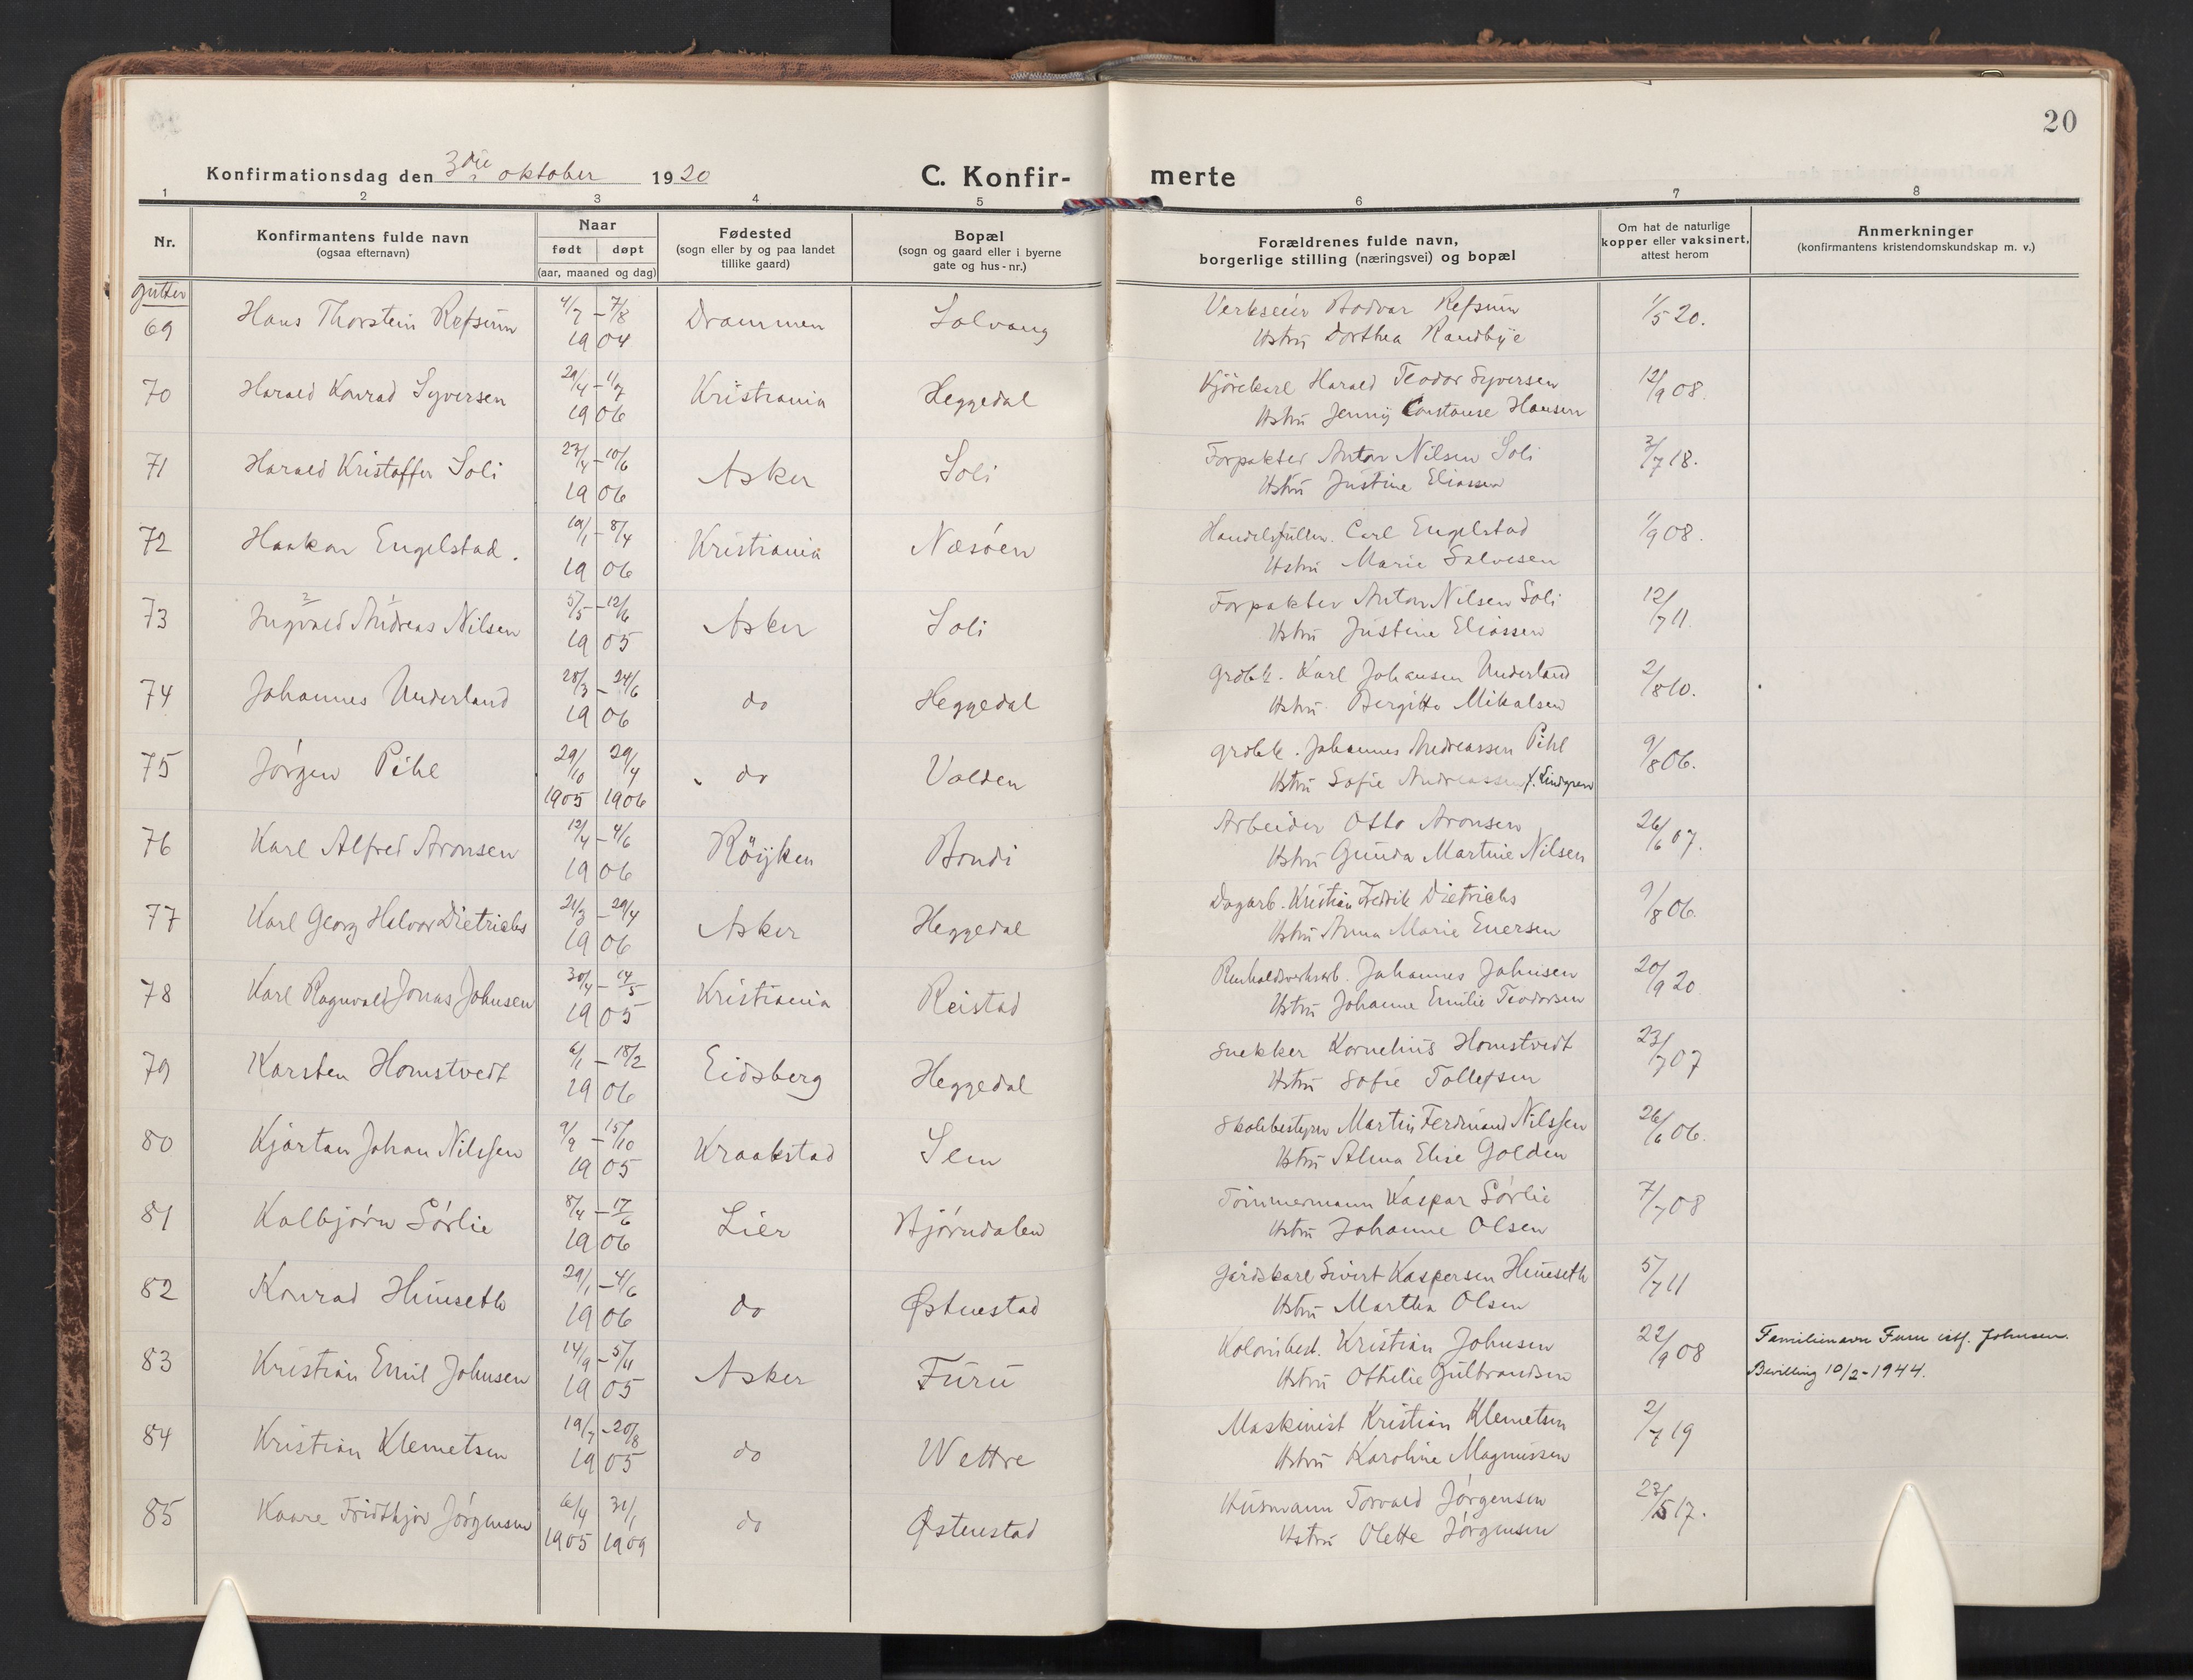 20
Konfirmationsdag den 3die oktober 1920
C. Konfir-
merte
1 2 3 4 5 6 7 8
Nr.
Konfirmantens fulde navn
(ogsaa efternavn)
Naar
født døpt
(aar, maaned og dag)
Fødested
(sogn eller by og paa landet
tillike gaard)
Bopæl
(sogn og gaard eller i byerne
gate og hus-nr.)
Forældrenes fulde navn,
borgerlige stilling (næringsvei) og bopæl
Om hat de naturlige
kopper eller vaksinert,
attest herom
Anmerkninger
(konfirmantens kristendomskundskap m. v.)
Gutter
69 Hans Thorstein Refsum 4/7 – 7/8 Drammen Solvang Verkseier Bodvar Refsum 1/5 20.
1904 Hstru Dorthea Randbye
70 Harald Konrad Syversen 29/4 – 1/7 Kristiania Heggedal Kjørekarl Harald Teodor Syversen 12/9 08.
1906 Hstru Jenny Constanse Hansen
71 Harald Kristoffer Soli 23/4 – 10/6 Asker Soli Forpakter Anton Nilsen Soli 3/7 18.
1906 Hstru Justine Eliassen
72 Haakon Engelstad. 19/1 – 8/4 Kristiania Næsøen Handelsfullm. Carl Engelstad 1/9 08.
1906 Hstru Marie Salvesen
2 1
73 Ingvald Andreas Nilsen 5/5 – 12/6 Asker Soli Forpakter Anton Nilsen Soli 12/7 11.
1905 Hstru Justine Eliassen
74 Johannes Underland 28/3 – 24/6 do Heggedal Grdbk. Karl Johansen Underland 2/8 10.
1906 Hstru Bergitte Mikalsen
75 Jörgen Pihl 29/10 29/4 do Valden Grdbk. Johannes Andreassen Pihl 9/8 06.
1905 1906 Hstru Sofie Andreassen f. Lindgren
76 Karl Alfred Aronsen 12/4 – 4/6 Röyken Bondi Arbeider Otto Aronsen 26/6 07.
1906 Hstru Gunda Martine Nilsen
77 Karl Georg Halvor Dietrichs 21/3 – 29/4 Asker Heggedal Dagarb. Kristian Fredrik Dietrichs 9/8 06.
1906 Hstru Anna Marie Enersen
78 Karl Ragnvald Jonas Johnsen 30/4 – 14/5 Kristiania Reistad Renholdsverksarb. Johannes Johnsen 20/9 20
1905 Hstru Johanne Emilie Teodorsen
79 Karsten Homstvedt 6/1 – 18/2 Eidsberg Heggedal Snekker Kornelius Homstvedt 23/7 07
1906 Hstru Sofie Tollefsen
80 Kjartan Johan Nilssen 9/9 – 15/10 Kraakstad Sem Skolebestyrer Martin Ferdinand Nilssen 26/6 06.
1905 Hstru Alma Elise Golden
81 Kolbjörn Sörlie 8/4 – 17/6 Lier Bjørndalen Tömmermann Kaspar Sörlie 7/7 08
1906 Hstru Johanne Olsen
82 Konrad Huuseth 29/1 – 4/6 do Østenstad Gårdskarl Sivert Kaspersen Huuseth 5/7 11
1906 Hstru Martha Olsen
83 Kristian Emil Johnsen 14/9 – 5/11 Asker Furu Kolonibest. Kristian Johnsen 22/9 08 Familienavn Furu istf. Johnsen.
1905 Hstru Othelie Gulbrandsen Bevilling 10/2-1944.
84 Kristian Klemetsen 19/7 – 20/8 do Wettre Maskinist Kristian Klemetsen 2/7 19
1905 Hstru Karoline Magnussen
85 Kaare Fridthjov Jörgensen 6/4 31/1 do Østenstad Husmann Torvald Jörgensen 23/5 17.
1905 1909 Hstru Olette Jörgensen